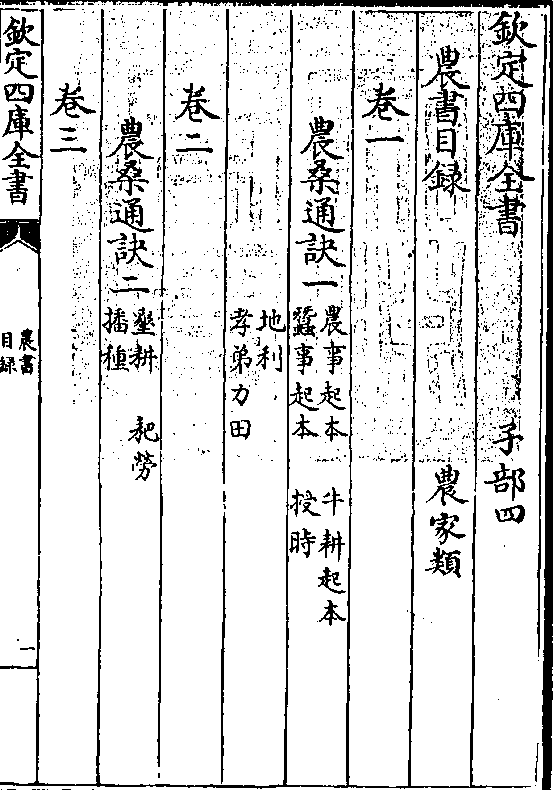 欽定四庫全書　子部四
農書目録　農家類
卷一
農桑通訣一　農事起本　牛耕起本
蠶事起本　授時
地利
孝弟力田
卷二
農桑通訣二　墾耕　耙勞
播種
卷三
欽定四庫全書
農書
目録
一